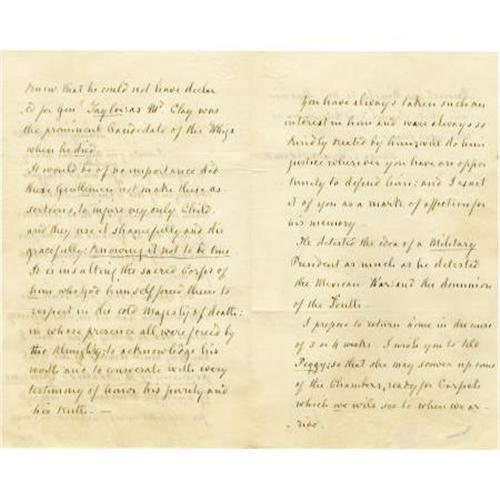 know that he could not have declar
ed for Genl Taylor as Mr. Clay was
the prominent Candidate of the Whigs
when he died.
It would be of no importance did
these Gentlemen not make these as-
sertions, to injure my only Child.
and they use it shamefully and dis
gracefully: Knowing it not to be true
It is insulting the sacred Corps of
him who God himself forced them to
respect in the cold Majesty of death:
in whose presence all were forced by
the Almighty; to acknowledge his
worth and to consecrate with every
testimony of honor his purity and
his truth. —
You have always taken such an
interest in him and were always so
kindly treated by him; will do him
justice wherever you have an oppor
tunity to defend him: and I exact
it of you as a mark of affection for
his memory.
He detested the idea of a Military
President as much as he detested
the Mexican War: and the dominion
of the South.
I propose to return home in the course
of 3 or 4 weeks. I wrote you to tell
Peggy; so that she may scower up some
of the Chambers, ready for Carpets
which we will see to when we ar-
rive.